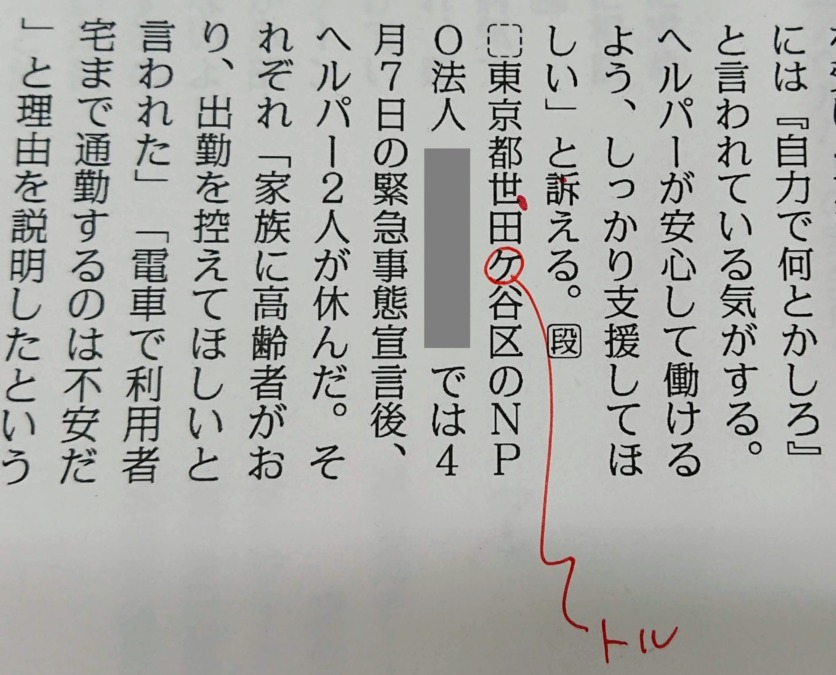 には『自力で何とかしろ』
と言われている気がする。
ヘルパーが安心して働ける
よう、しっかり支援してほ
しい」と訴える。段
東京都世田ケ谷区のNP
O法人
では4
月7日の緊急事態宣言後、
ヘルパー2人が休んだ。そ
れぞれ「家族に高齢者がお
り、出勤を控えてほしいと
言われた」「電車で利用者
宅まで通勤するのは不安だ
」と理由を説明したという
トル